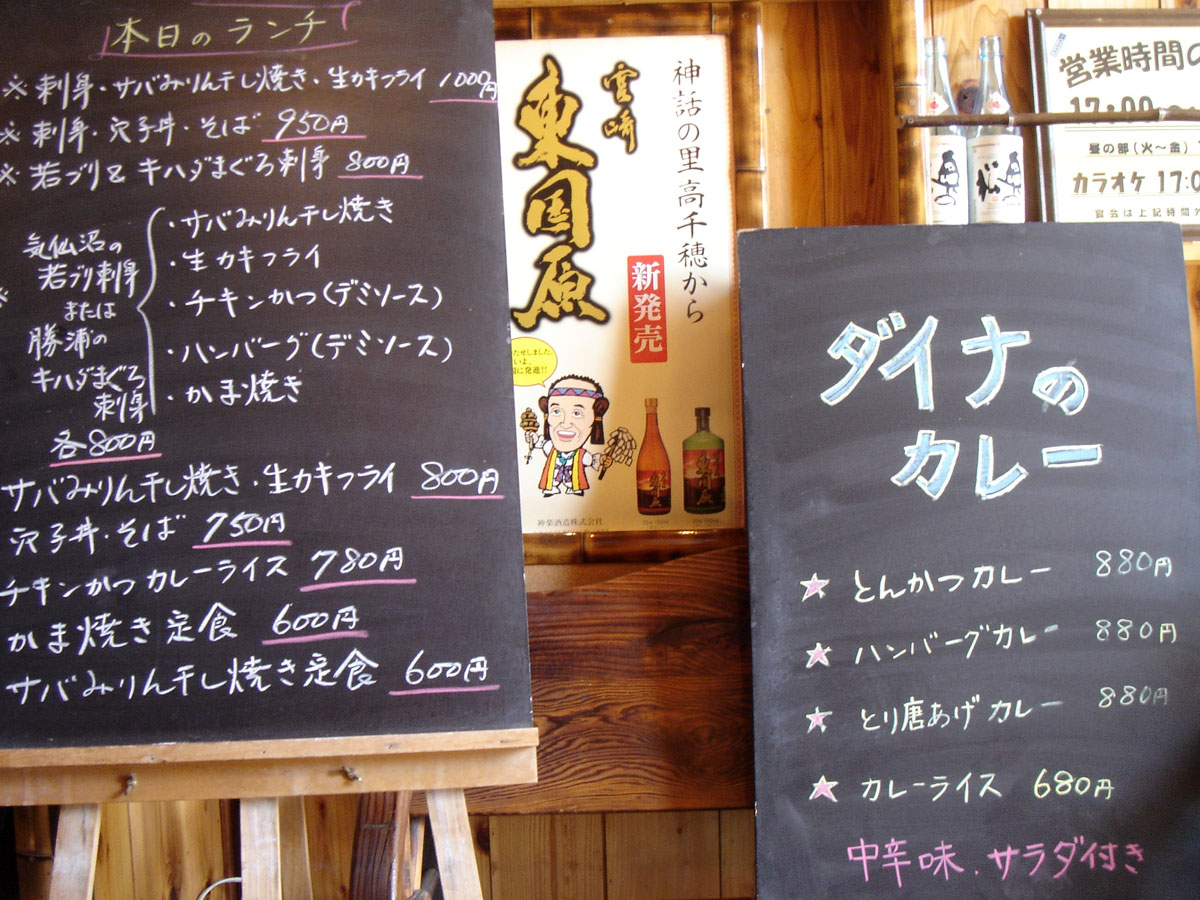 本日のランチ
※ 刺身・サバみりん干し焼き・生カキフライ 1000円
※ 刺身・穴子丼・そば 950円
※ 若ブリ&キハダまぐろ刺身 800円
※
気仙沼の
若ブリ刺身
または
勝浦の
キハダまぐろ
刺身
・サバみりん干し焼き
・生カキフライ
・チキンかつ(デミソース)
・ハンバーグ(デミソース)
・かま焼き
各800円
サバみりん干し焼き・生カキフライ 800円
穴子丼・そば 750円
チキンかつカレーライス 780円
かま焼き定食 600円
サバみりん干し焼き定食 600円
神話の里高千穂から
新発売
東国原
たせしました。
いよ、
に発進!!
東国原
神楽酒造株式会社
営業時間の
17:00
昼の部(火〜金)
カラオケ 17:0
宴会は上記時間
ダイナの
カレー
★ とんかつカレー 880円
★ ハンバーグカレー 880円
★ とり唐あげカレー 880円
★ カレーライス 680円
中辛味.サラダ付き